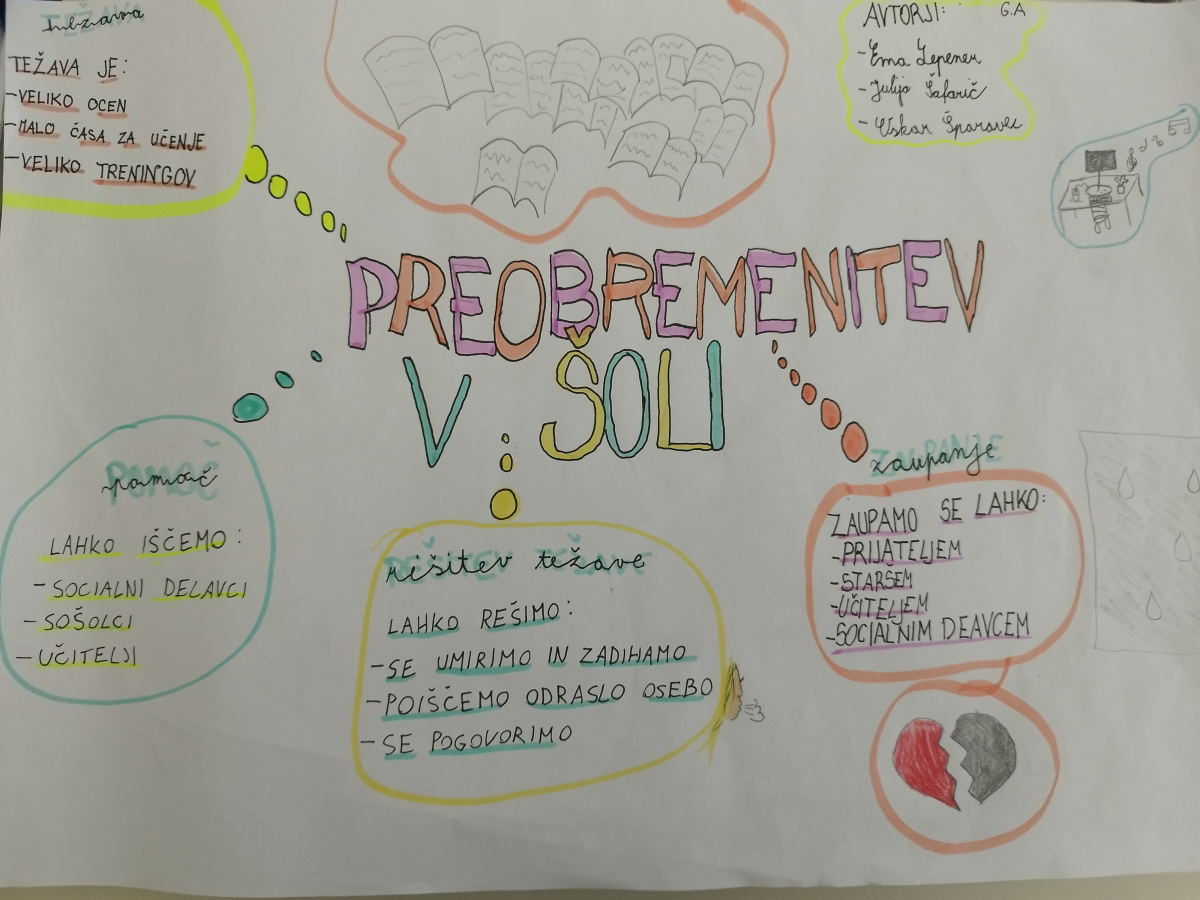 težava
TEŽAVA JE:
-VELIKO OCEN
-MALO ČASA ZA UČENJE
-VELIKO TRENINGOV
AVTORJI: 6.A
-Ema Lepener
-Julija Šafarič
-Oskar Šparavec
PREOBREMENITEV
V ŠOLI
pomoč
LAHKO IŠČEMO:
-SOCIALNI DELAVCI
-SOŠOLCI
-UČITELJI
rešitev težave
LAHKO REŠIMO:
-SE UMIRIMO IN ZADIHAMO
-POIŠČEMO ODRASLO OSEBO
-SE POGOVORIMO
zaupanje
ZAUPAMO SE LAHKO:
-PRIJATELJEM
-STARŠEM
-UČITELJEM
-SOCIALNIM DEAVCEM